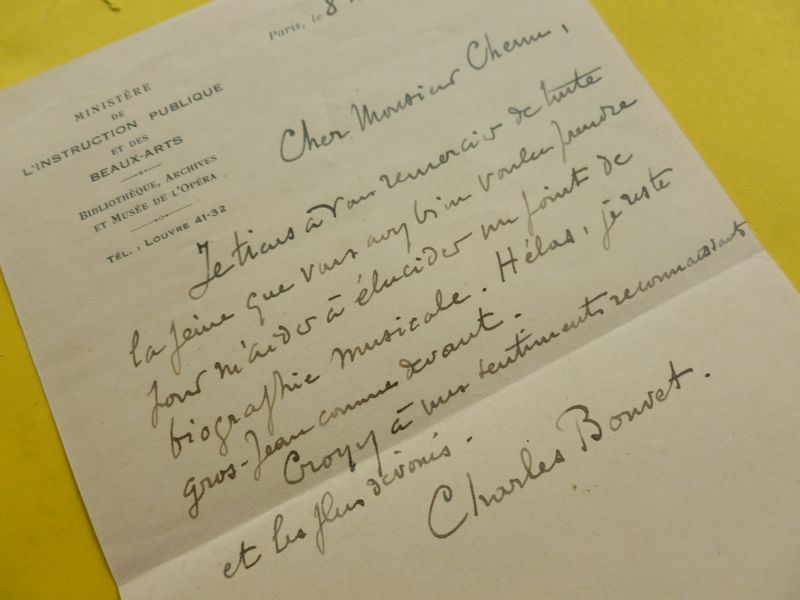 Paris, le 8
MINISTÈRE
DE
L'INSTRUCTION PUBLIQUE
ET DES
BEAUX-ARTS
BIBLIOTHÈQUE, ARCHIVES
ET MUSÉE DE L'OPÉRA
TÉL. : LOUVRE 41-32
Cher Monsieur
Je tiens à vous remercier de toute
la peine que vous avez bien voulu prendre
pour m'aider à élucider un point de
biographie musicale. Hélas, je reste
gros-Jean comme devant.
Croyez à mes sentiments reconnaissants
et les plus dévoués.
Charles Bouvet.